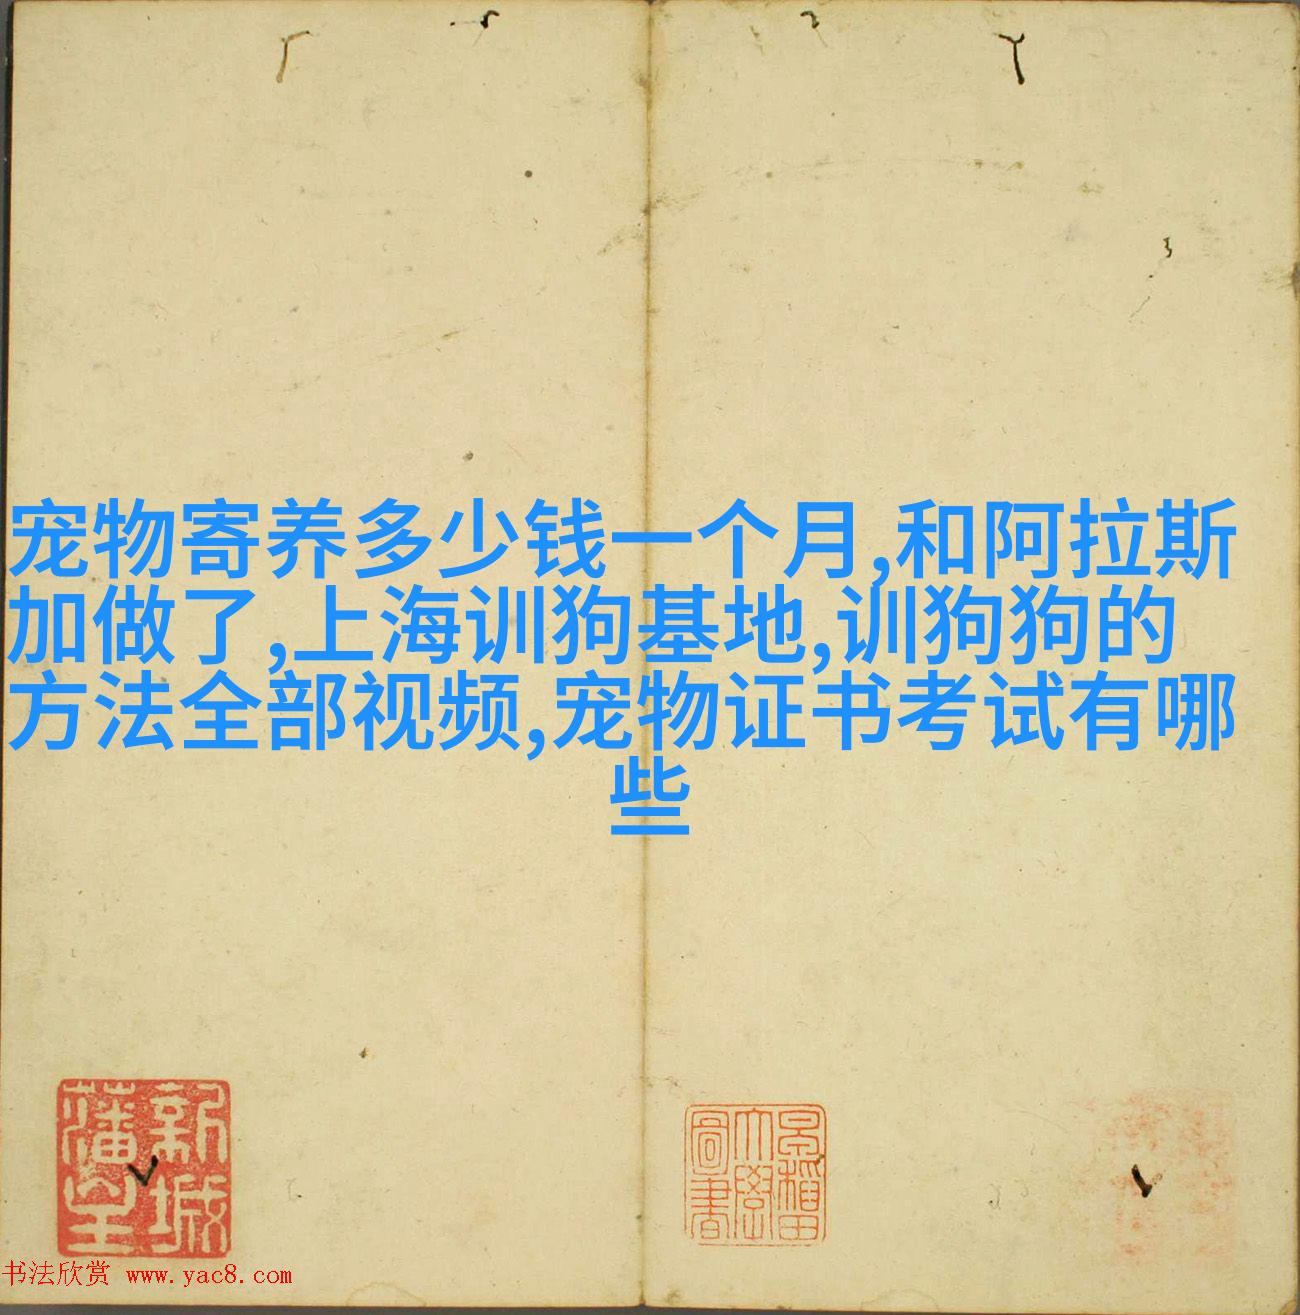 宠物寄养多少钱一个月,和阿拉斯
加做了,上海训狗基地,训狗狗的
方法全部视频,宠物证书考试有哪
些
新城
藩至
早稲田
大學
圖書
书法欣赏 www.yac8.com